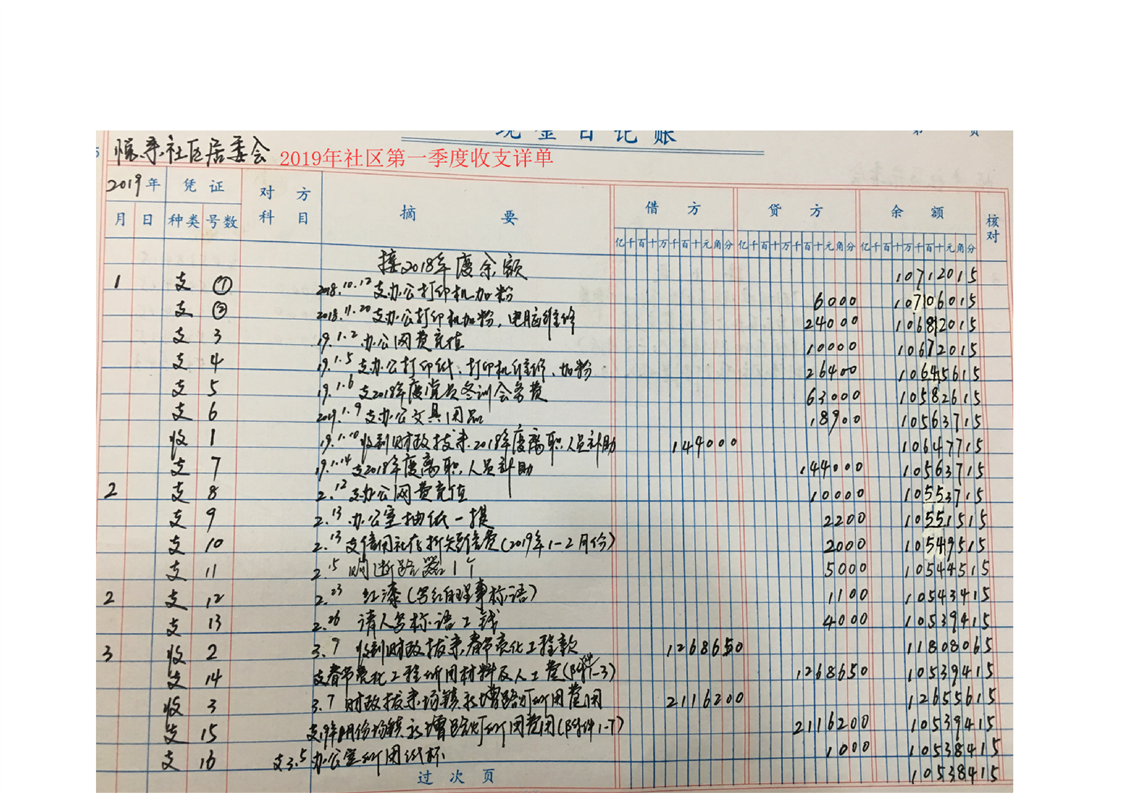 现金日记账
第 页
社区居委会 2019年社区第一季度收支详单
2019年 凭证 对方科目 摘要 借方 贷方 余额 核对
月 日 种类 号数 亿千百十万千百十元角分 亿千百十万千百十元角分 亿千百十万千百十元角分
接2018年度余额 10712015
1 支 ① 2018.10.12支办公打印机加粉 6000 10706015
支 ② 2018.11.20支办公打印机加粉,电脑维修 24000 10682015
支 3 19.1.2办公网费充值 10000 10672015
支 4 19.1.5支办公打印纸、打印机维修、加粉 26400 10645615
支 5 19.1.6支2018年度党员冬训会务费 63000 10582615
支 6 2019.1.9支办公文具用品 18900 10563715
收 1 19.1.10收到财政拨来2018年度离职人员补助 149000 10647715
支 7 19.1.14支2018年度离职人员补助 144000 10563715
2 支 8 2.12支办公网费充值 10000 10553715
支 9 2.13.办公室抽纸一提 2200 10551515
支 10 2.13支信用社存折短信费(2019年1-2月份) 2000 10549515
支 11 2.15 断路器1个 5000 10544515
2 支 12 2.23 红漆(写标语) 1100 10543415
支 13 2.26 请人写标语工钱 4000 10539415
3 收 2 3.7 收到财政拨来春节亮化工程款 1268650 11808065
支 14 支春节亮化工程所用材料及人工费(附件1-3) 1268650 10539415
收 3 3.7 财政拨来场镇路灯所用费用 2116200 12655615
支 15 所用费用(附件1-7) 2116200 10539415
支 16 支3.5办公室所用纸杯 1000 10538415
过次页 10538415